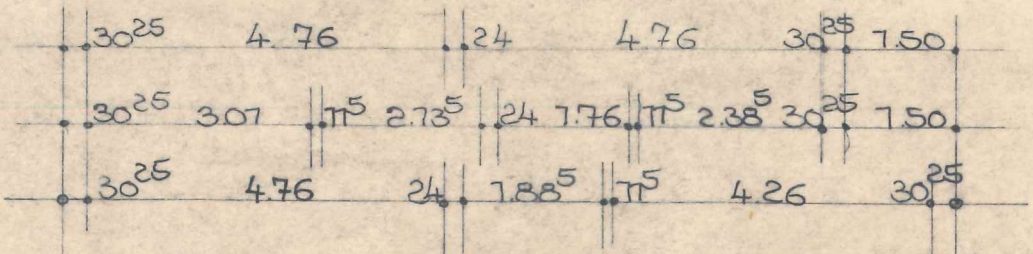 30²⁵ 4.76 24 4.76 30²⁵ 1.50
30²⁵ 3.01 11⁵ 2.13⁵ 24 1.76 11⁵ 2.38⁵ 30²⁵ 1.50
30²⁵ 4.76 24 1.88⁵ 11⁵ 4.26 30²⁵